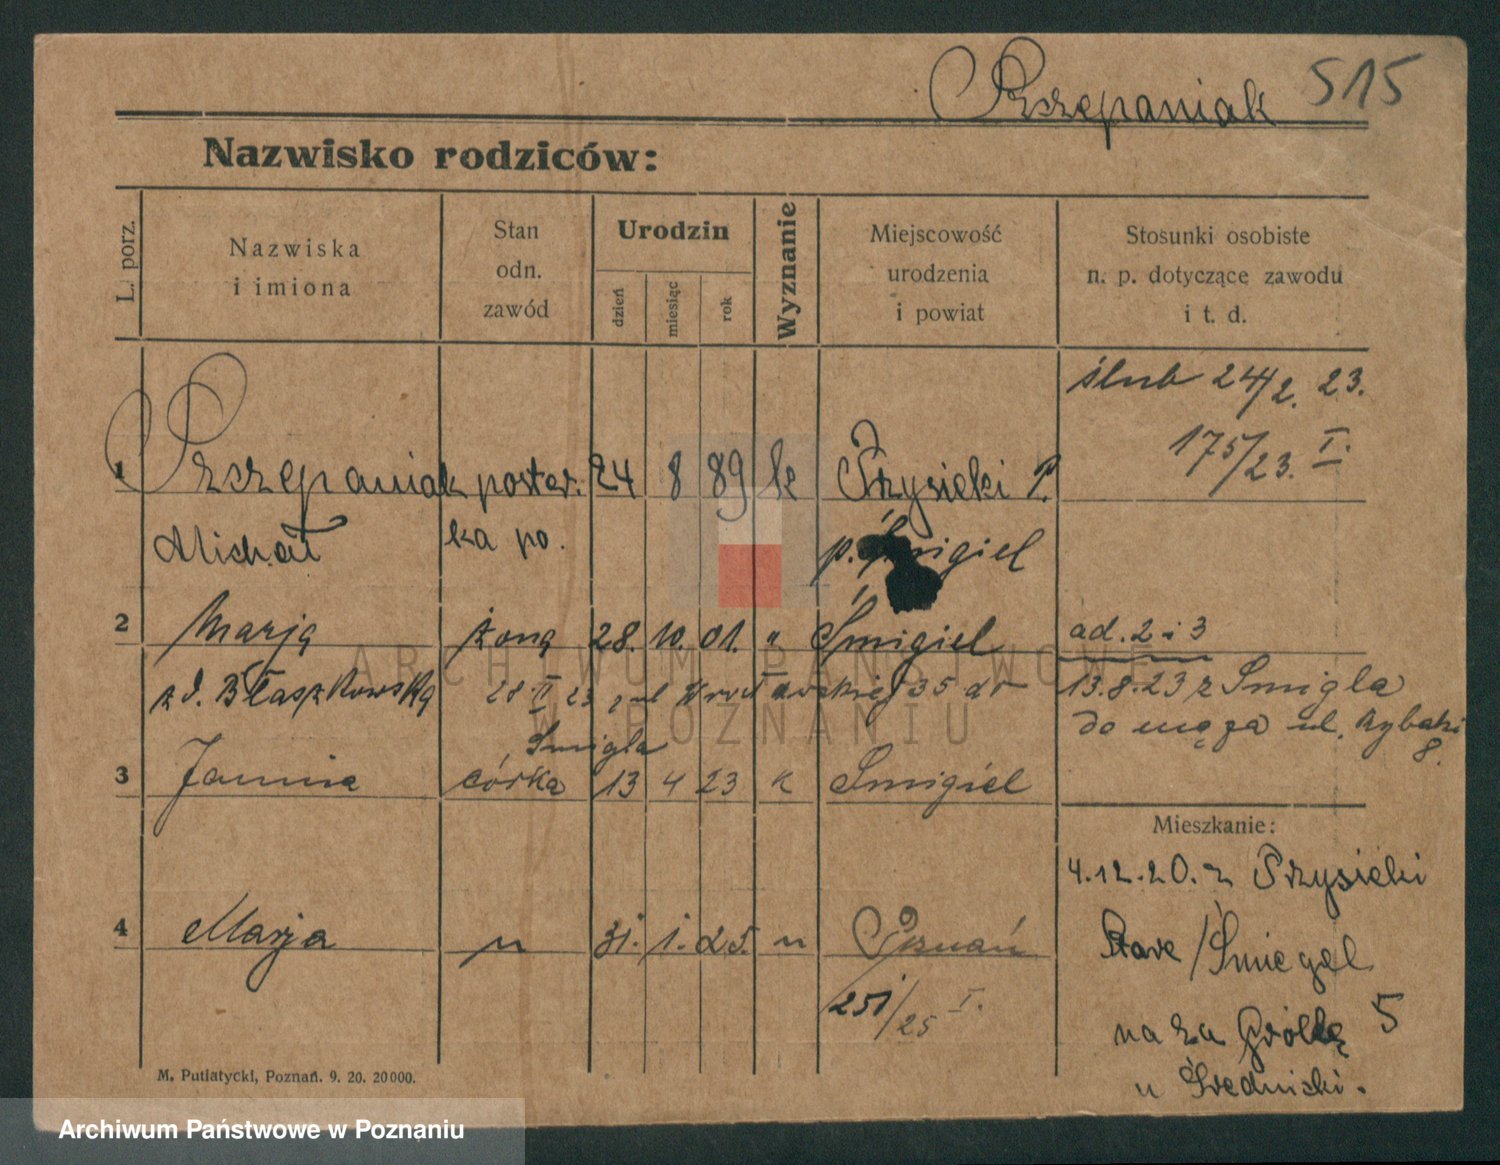 Szczepaniak 515
Nazwisko rodziców:
L. porz.
Nazwiska
i imiona
Stan
odn.
zawód
Urodzin
dzień
miesiąc
rok
Wyznanie
Miejscowość
urodzenia
i powiat
Stosunki osobiste
n. p. dotyczące zawodu
i t. d.
ślub 24/2. 23.
175/23. I.
1 Szczepaniak poster. 24 8 89 k Przysieki P.
Michał ka po. p. Śmigiel
2 Marja żona 28. 10. 01. " Śmigiel ad. 2 i 3
z d. Błaszkowska 28 II 23 35 do 13.8.23 z Śmigla
Śmigla do męża ul. Rybaki
8.
3 Janina córka 13 4 23 k Śmigiel
Mieszkanie:
4.12.20. z Przysieki
Stare / Śmiegel
4 Marja " 31. 1. 25. " Poznań
251/25 I.
na za Groblą 5
u Średnicki.
M. Putiatycki, Poznań. 9. 20. 20000.
ARCHIWUM PAŃSTWOWE
W POZNANIU
Archiwum Państwowe w Poznaniu